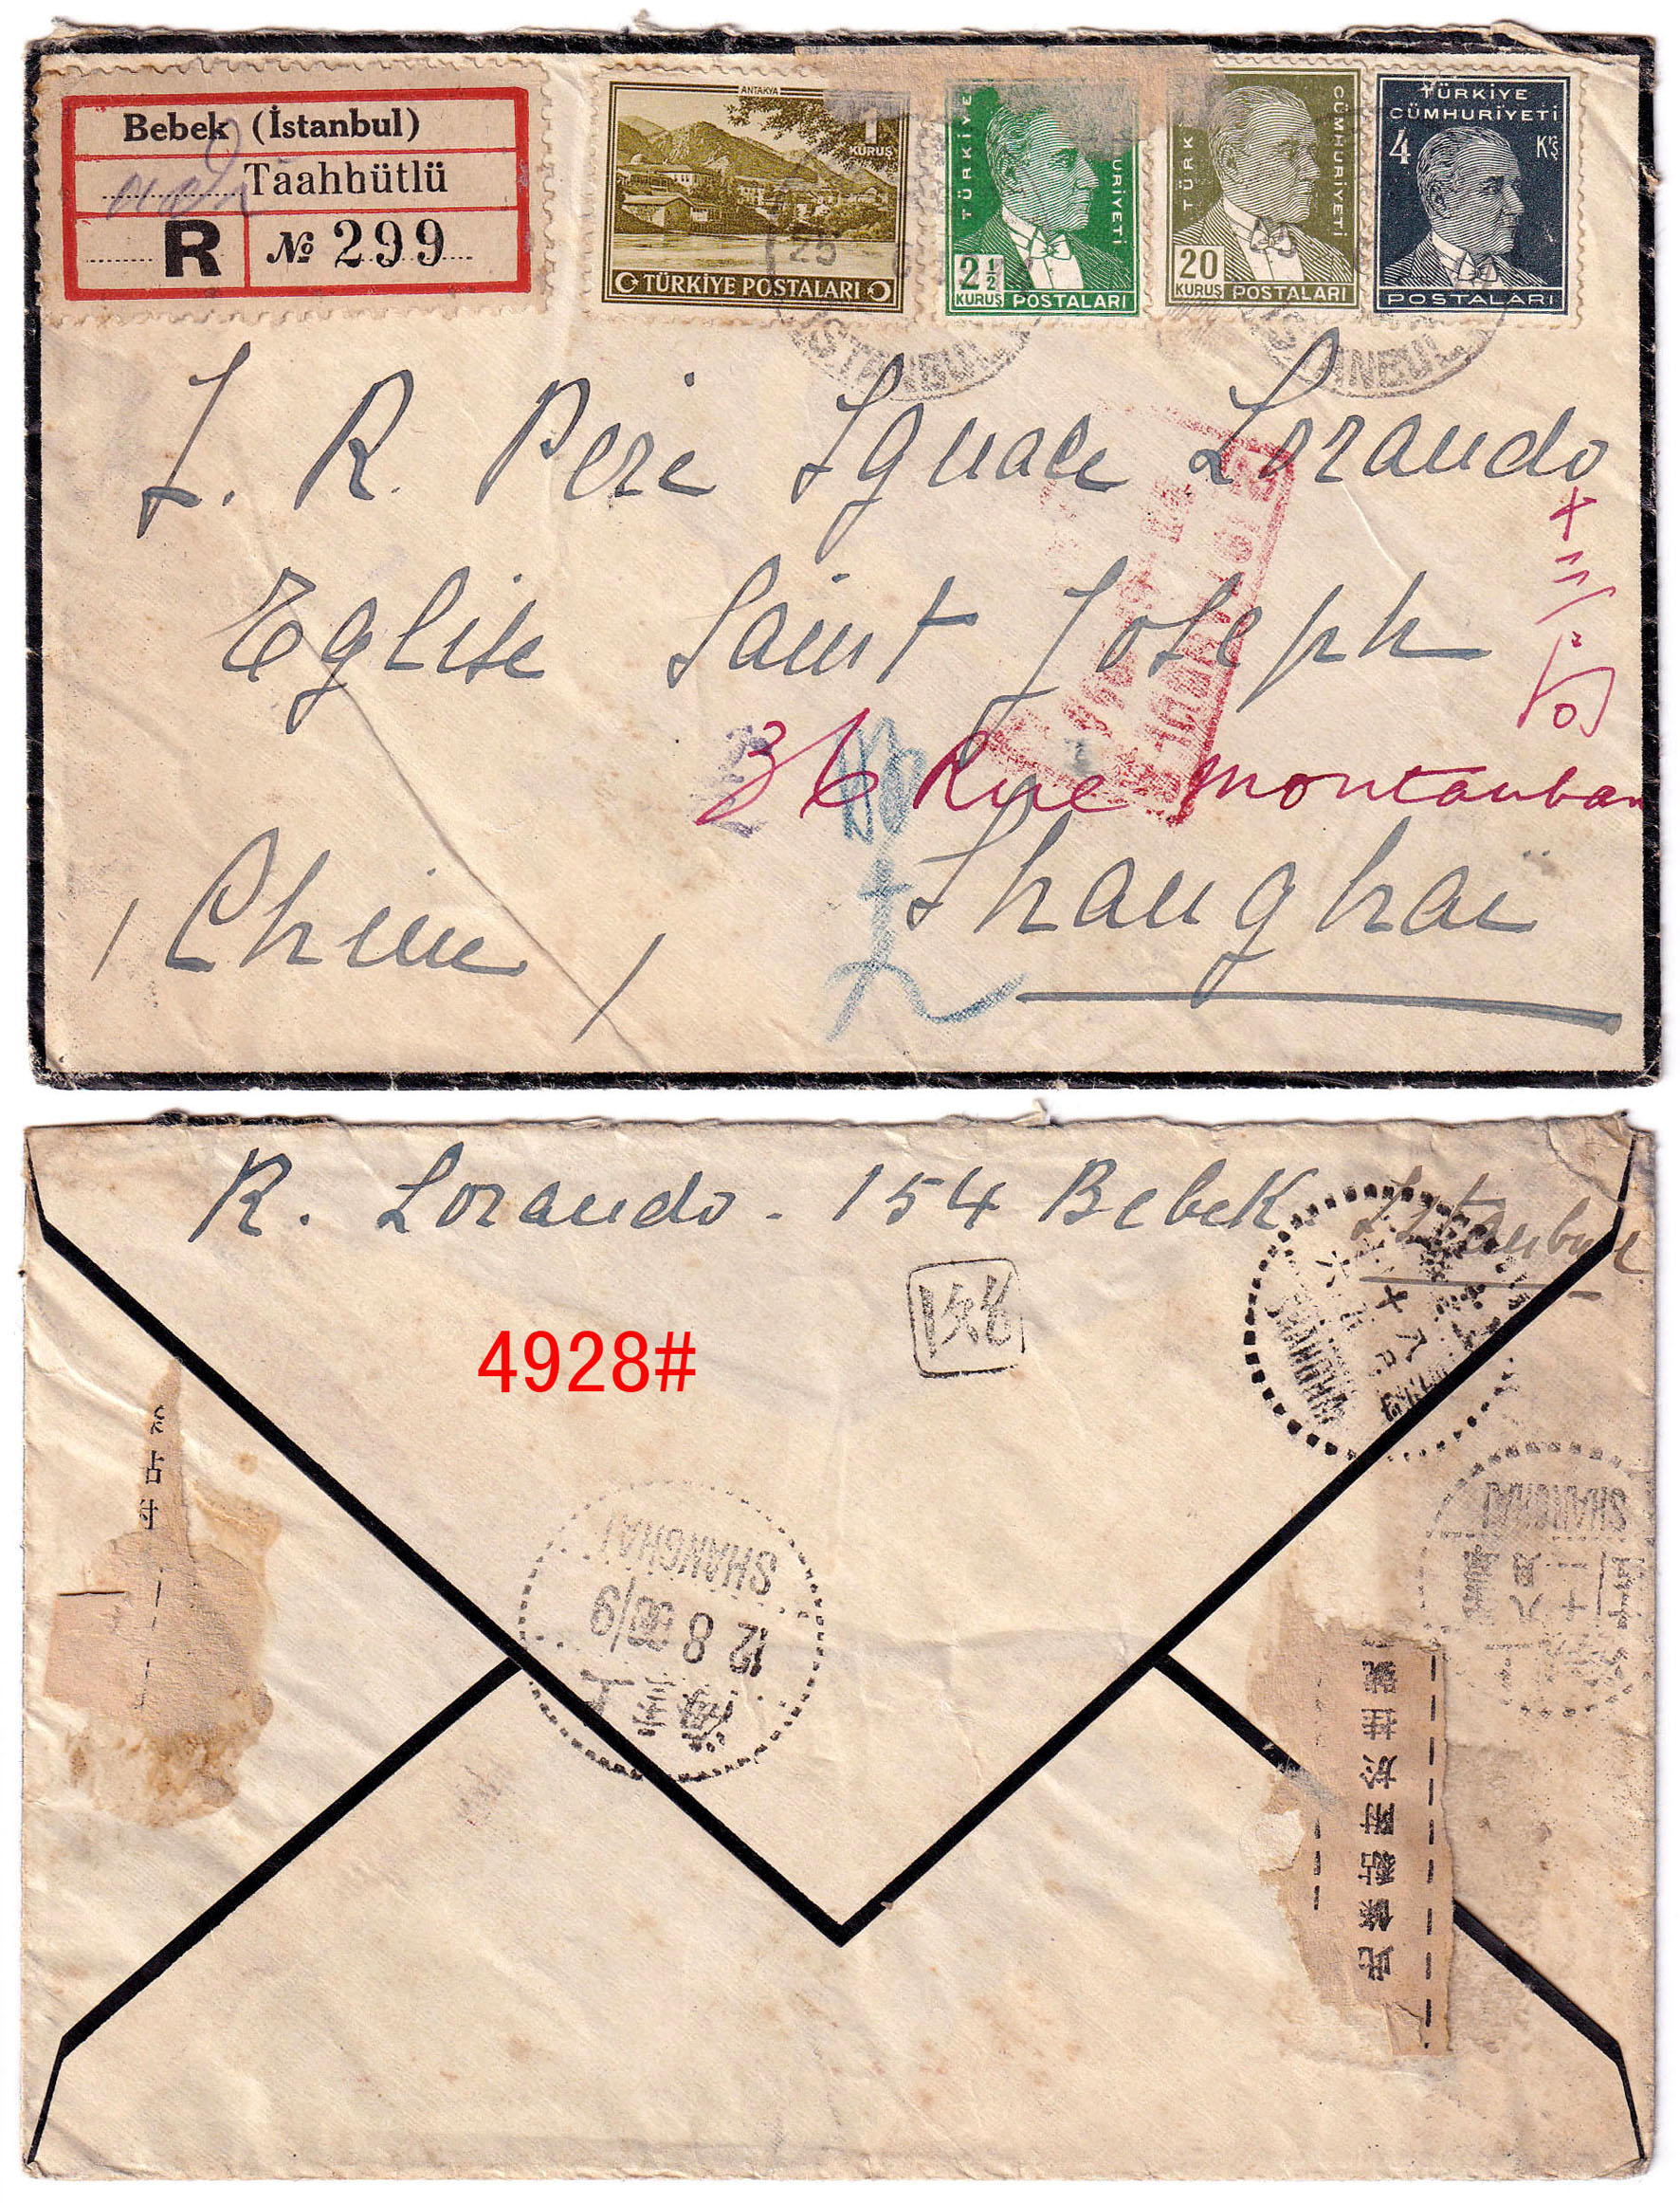 Bebek (İstanbul)
Taahhütlü
R № 299
ANTAKYA
1
KURUŞ
TÜRKİYE POSTALARI
TÜRKİYE
URİYETİ
2½
KURUŞ POSTALARI
TÜRK
CÜMHURİYETİ
20
KURUŞ POSTALARI
TÜRKİYE
CÜMHURİYETİ
4 K'Ş
POSTALARI
İSTANBUL
İSTANBUL
R. Père Lorando
Eglise Saint Joseph
36 Rue Montauban
Shanghaï
(Chine)
R. Lorando - 154 Bebek Istanbul
4928#
SHANGHAI
SHANGHAI
SHANGHAI
12 8
上海
此條黏附於挂號